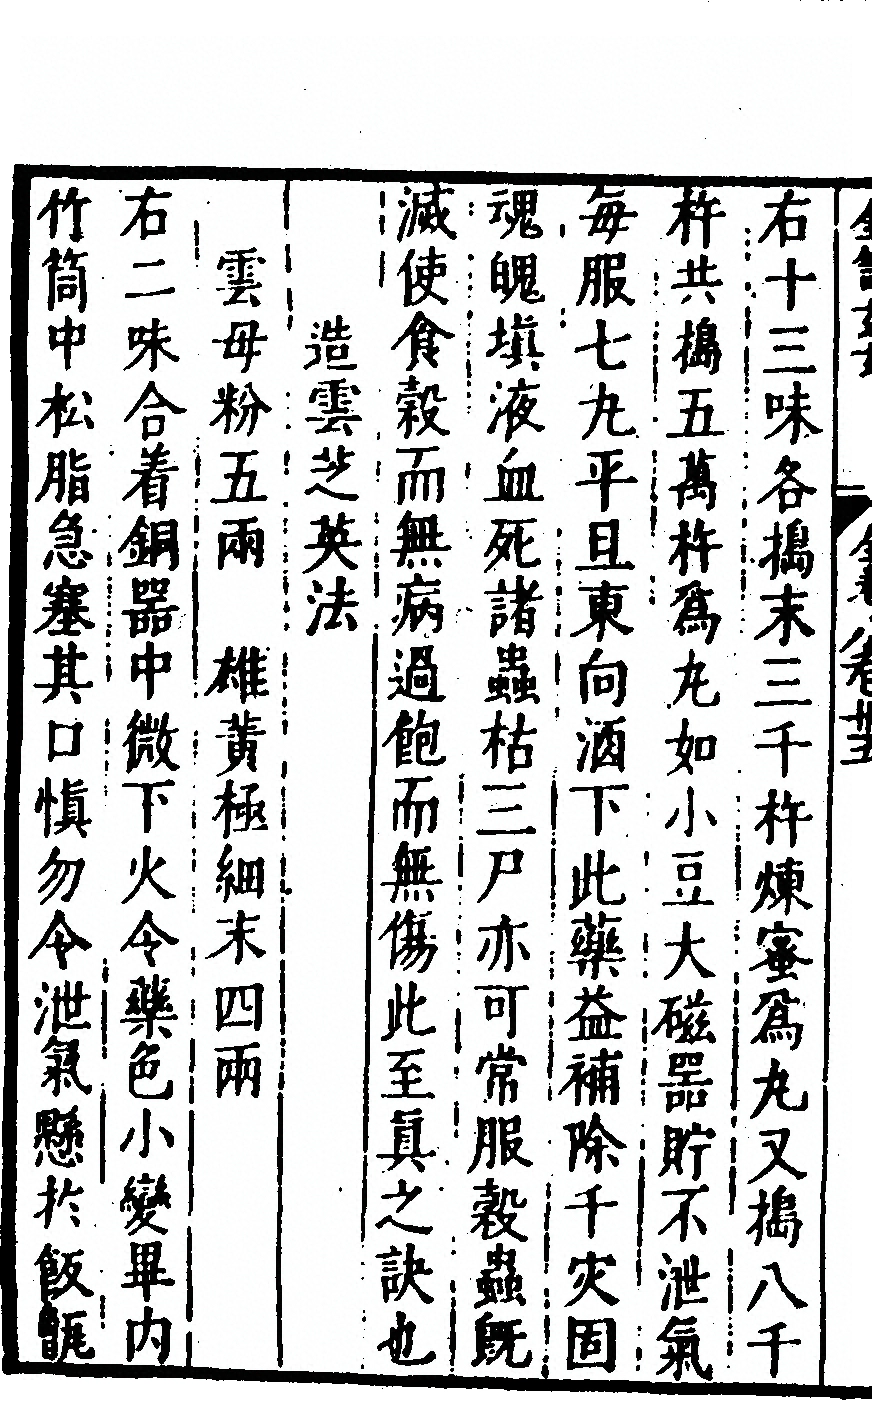 右十三味各搗末三千杵煉蜜爲丸又搗八千
杵共搗五萬杵爲丸如小豆大磁器貯不泄氣
每服七丸平旦東向酒下此藥益補除千灾固
魂魄塡液血死諸蟲枯三尸亦可常服穀蟲旣
滅使食穀而無病過飽而無傷此至眞之訣也
造雲芝英法
雲母粉五兩　雄黃極細末四兩
右二味合着銅器中微下火令藥色小變畢内
竹筒中松脂急塞其口愼勿令泄氣懸於飯甑